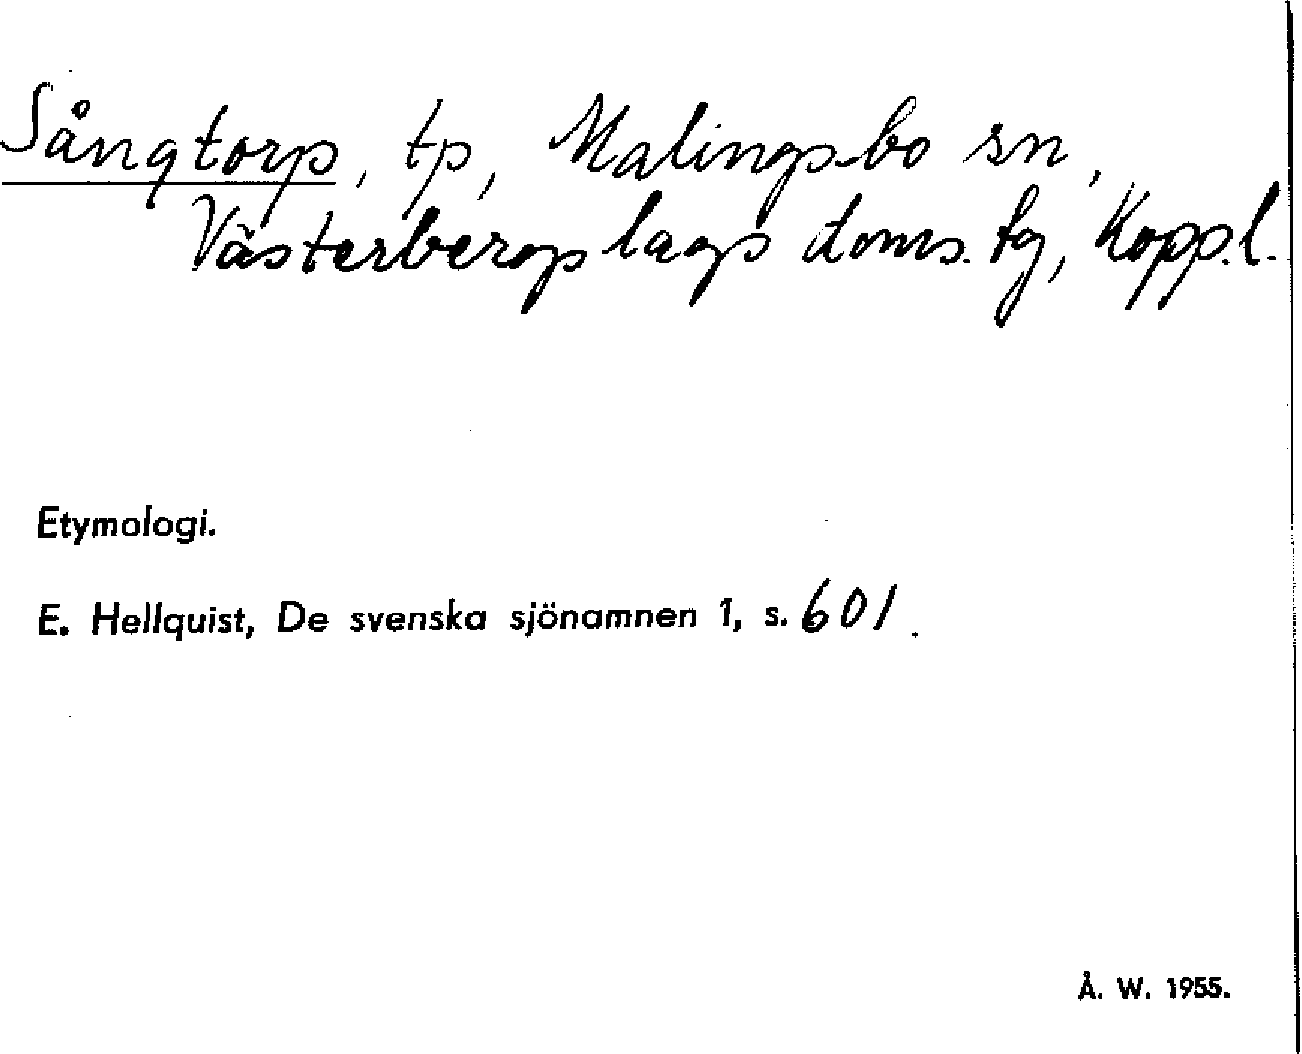 Sångtorp, tp, Malingsbo sn,
Västerbergslags doms. tg, Kopp.l.
Etymologi.
E. Hellquist, De svenska sjönamnen 1, s. 601.
Å. W. 1955.